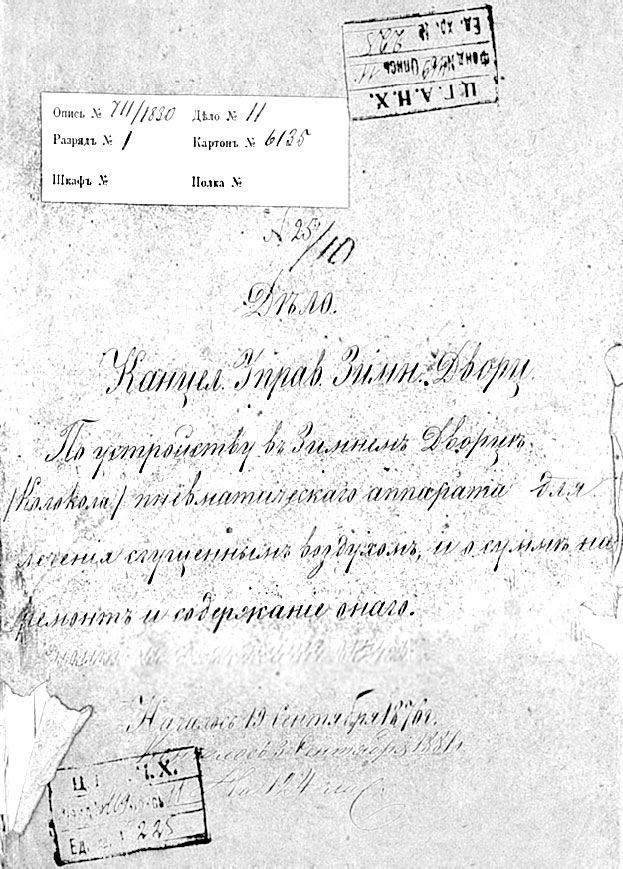 Ц.Г.А.Н.Х.
Фонд № 469 Опись 11
Ед. хр. № 225
Опись № VII/1830 Дѣло № 11
Разрядъ № 1 Картонъ № 6135
Шкафъ № Полка №
№ 25/10
Дѣло.
Канцел. Управ. Зимн. Дворц.
По устройству въ Зимнемъ Дворцѣ.
/Колокола/ пневматическаго аппарата для
леченія сгущеннымъ воздухомъ, и о суммѣ на
ремонтъ и содержаніе онаго.
Началось 19 Сентября 1876 г.
3 Сентября 1881 г.
На 124
Ц Х.
11
Ед. 225